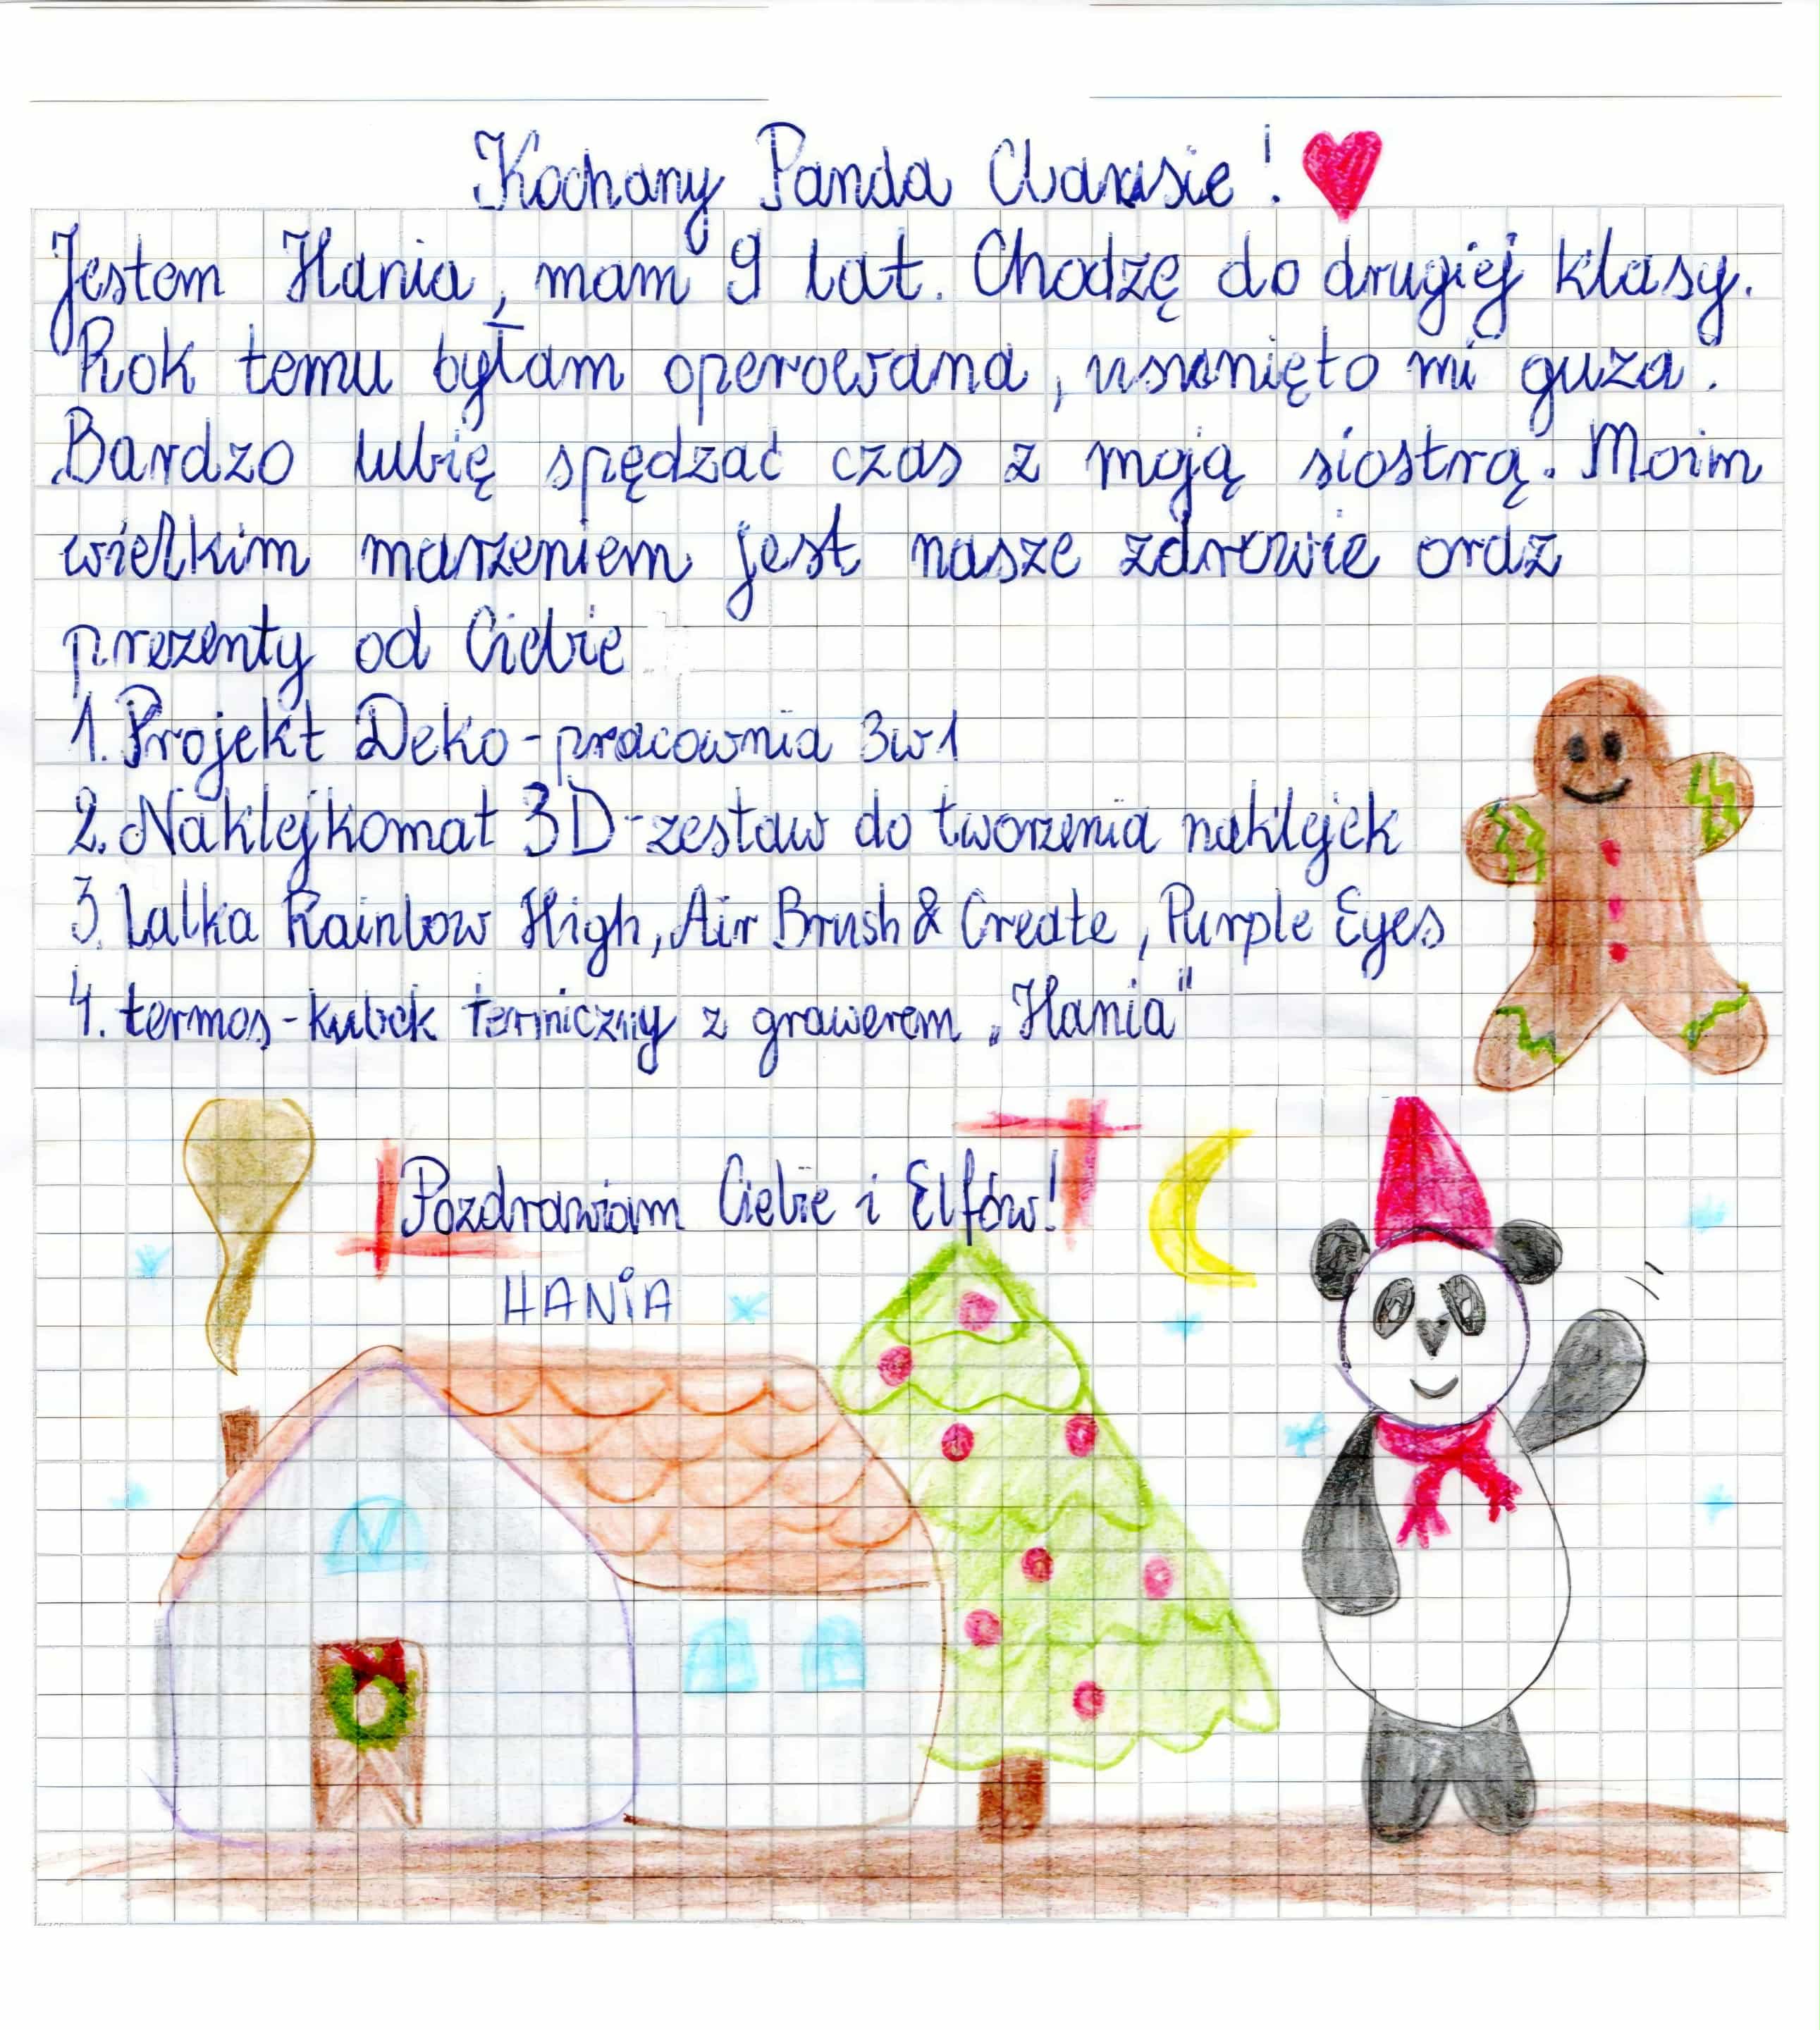 Kochany Panda Clausie!
Jestem Hania, mam 9 lat. Chodzę do drugiej klasy.
Rok temu byłam operowana, usunięto mi guza.
Bardzo lubię spędzać czas z moją siostrą. Moim
wielkim marzeniem jest nasze zdrowie oraz
prezenty od Ciebie
1. Projekt Deko - pracownia 3w1
2. Naklejkomat 3D - zestaw do tworzenia naklejek
3. Lalka Rainbow High, Air Brush & Create, Purple Eyes
4. termos - kubek termiczny z grawerem „Hania"
Pozdrawiam Ciebie i Elfów!
HANiA